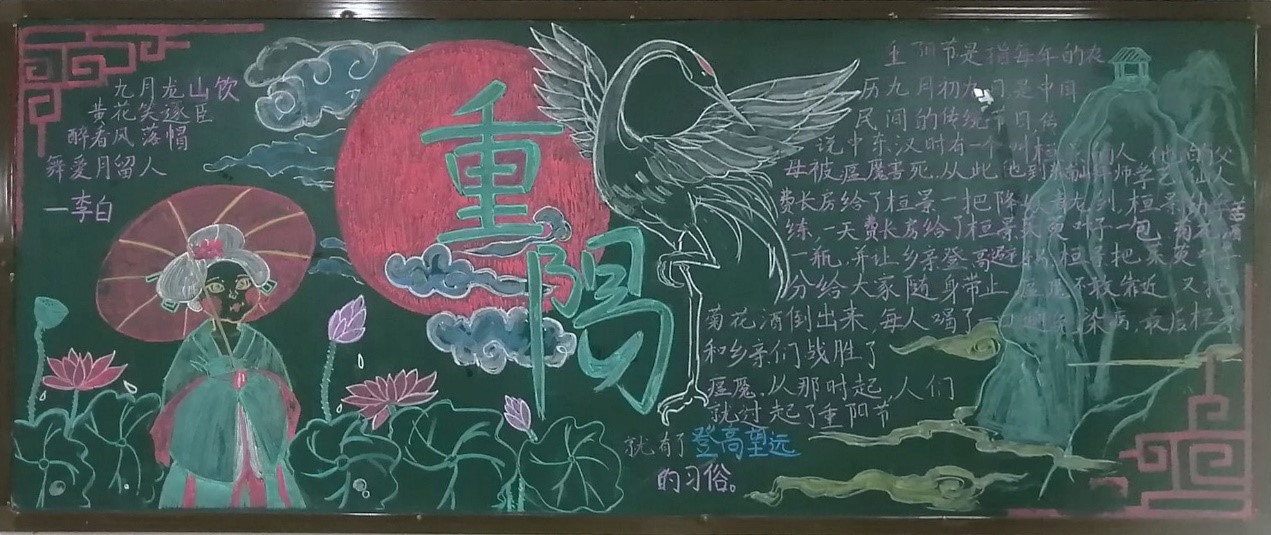 九月龙山饮
黄花笑逐臣
醉看风落帽
舞爱月留人
一李白
重阳
重阳节是指每年的农
历九月初九日是中国
民间的传统节日,传
说中东汉时有一个叫桓人,他的父
母被瘟魔害死.从此,也到师学艺,仙人
费长房给了桓景一把降桓景
练.一天费长房给了桓景茱萸叶子一包,菊花酒
一瓶,并让乡亲登高避桓景把茱萸叶子
分给大家随身带上,瘟魔不敢靠近,又把
菊花酒倒出来,每人喝了一口染病,最后桓景
和乡亲们战胜了
瘟魔.从那时起,人们
就过起了重阳节
就有了登高望远
的习俗。